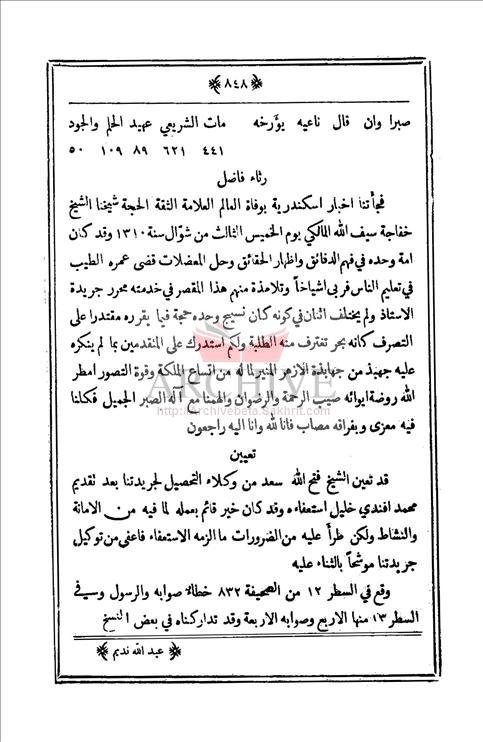 ٨٤٨
صبرا وان قال ناعيه يؤرخه مات الشريعي عهيد الحلم والجود
٤٤١ ٦٢١ ٨٩ ١٠٩ ٥٠
رثاء فاضل
فجأتنا اخبار اسكندرية بوفاة العالم العلامة الثقة الحجة شيخنا الشيخ
خفاجة سيف الله المالكي يوم الخميس الثالث من شوال سنة ١٣١٠ وقد كان
امة وحده في فهم الدقائق واظهار الحقائق وحل المعضلات قضى عمره الطيب
في تعليم الناس فربى اشياخاً وتلامذة منهم هذا المقصر في خدمته محرر جريدة
الاستاذ ولم يختلف اثنان في كونه كان نسيج وحده حجة فيما يقرره مقتدرا على
التصرف كانه بحر تغترف منه الطلبة ولكم استدرك على المتقدمين بما لم ينكره
عليه جهبذ من جهابذة الازهر المنير لما له من اتساع الملكة وقوة التصور امطر
الله روضة ايوائه صيب الرحمة والرضوان والهمنا مع آله الصبر الجميل فكلنا
فيه معزى وبفراقه مصاب فانا لله وانا اليه راجعون
تعيين
قد تعين الشيخ فتح الله سعد من وكلاء التحصيل لجريدتنا بعد تقديم
محمد افندي خليل استعفاءه وقد كان خير قائم بعمله لما فيه من الامانة
والنشاط ولكن طرأ عليه من الضرورات ما الزمه الاستعفاء فاعفي من توكيل
جريدتنا موشحاً بالثناء عليه
وقع في السطر ١٢ من الصحيفة ٨٣٢ خطالا صوابه والرسول وسيفي
السطر ١٣ منها الاربع وصوابه الاربعة وقد تداركناه في بعض النسخ
عبد الله نديم
ARCHIVE
http://archivebeta.Sakhrit.com